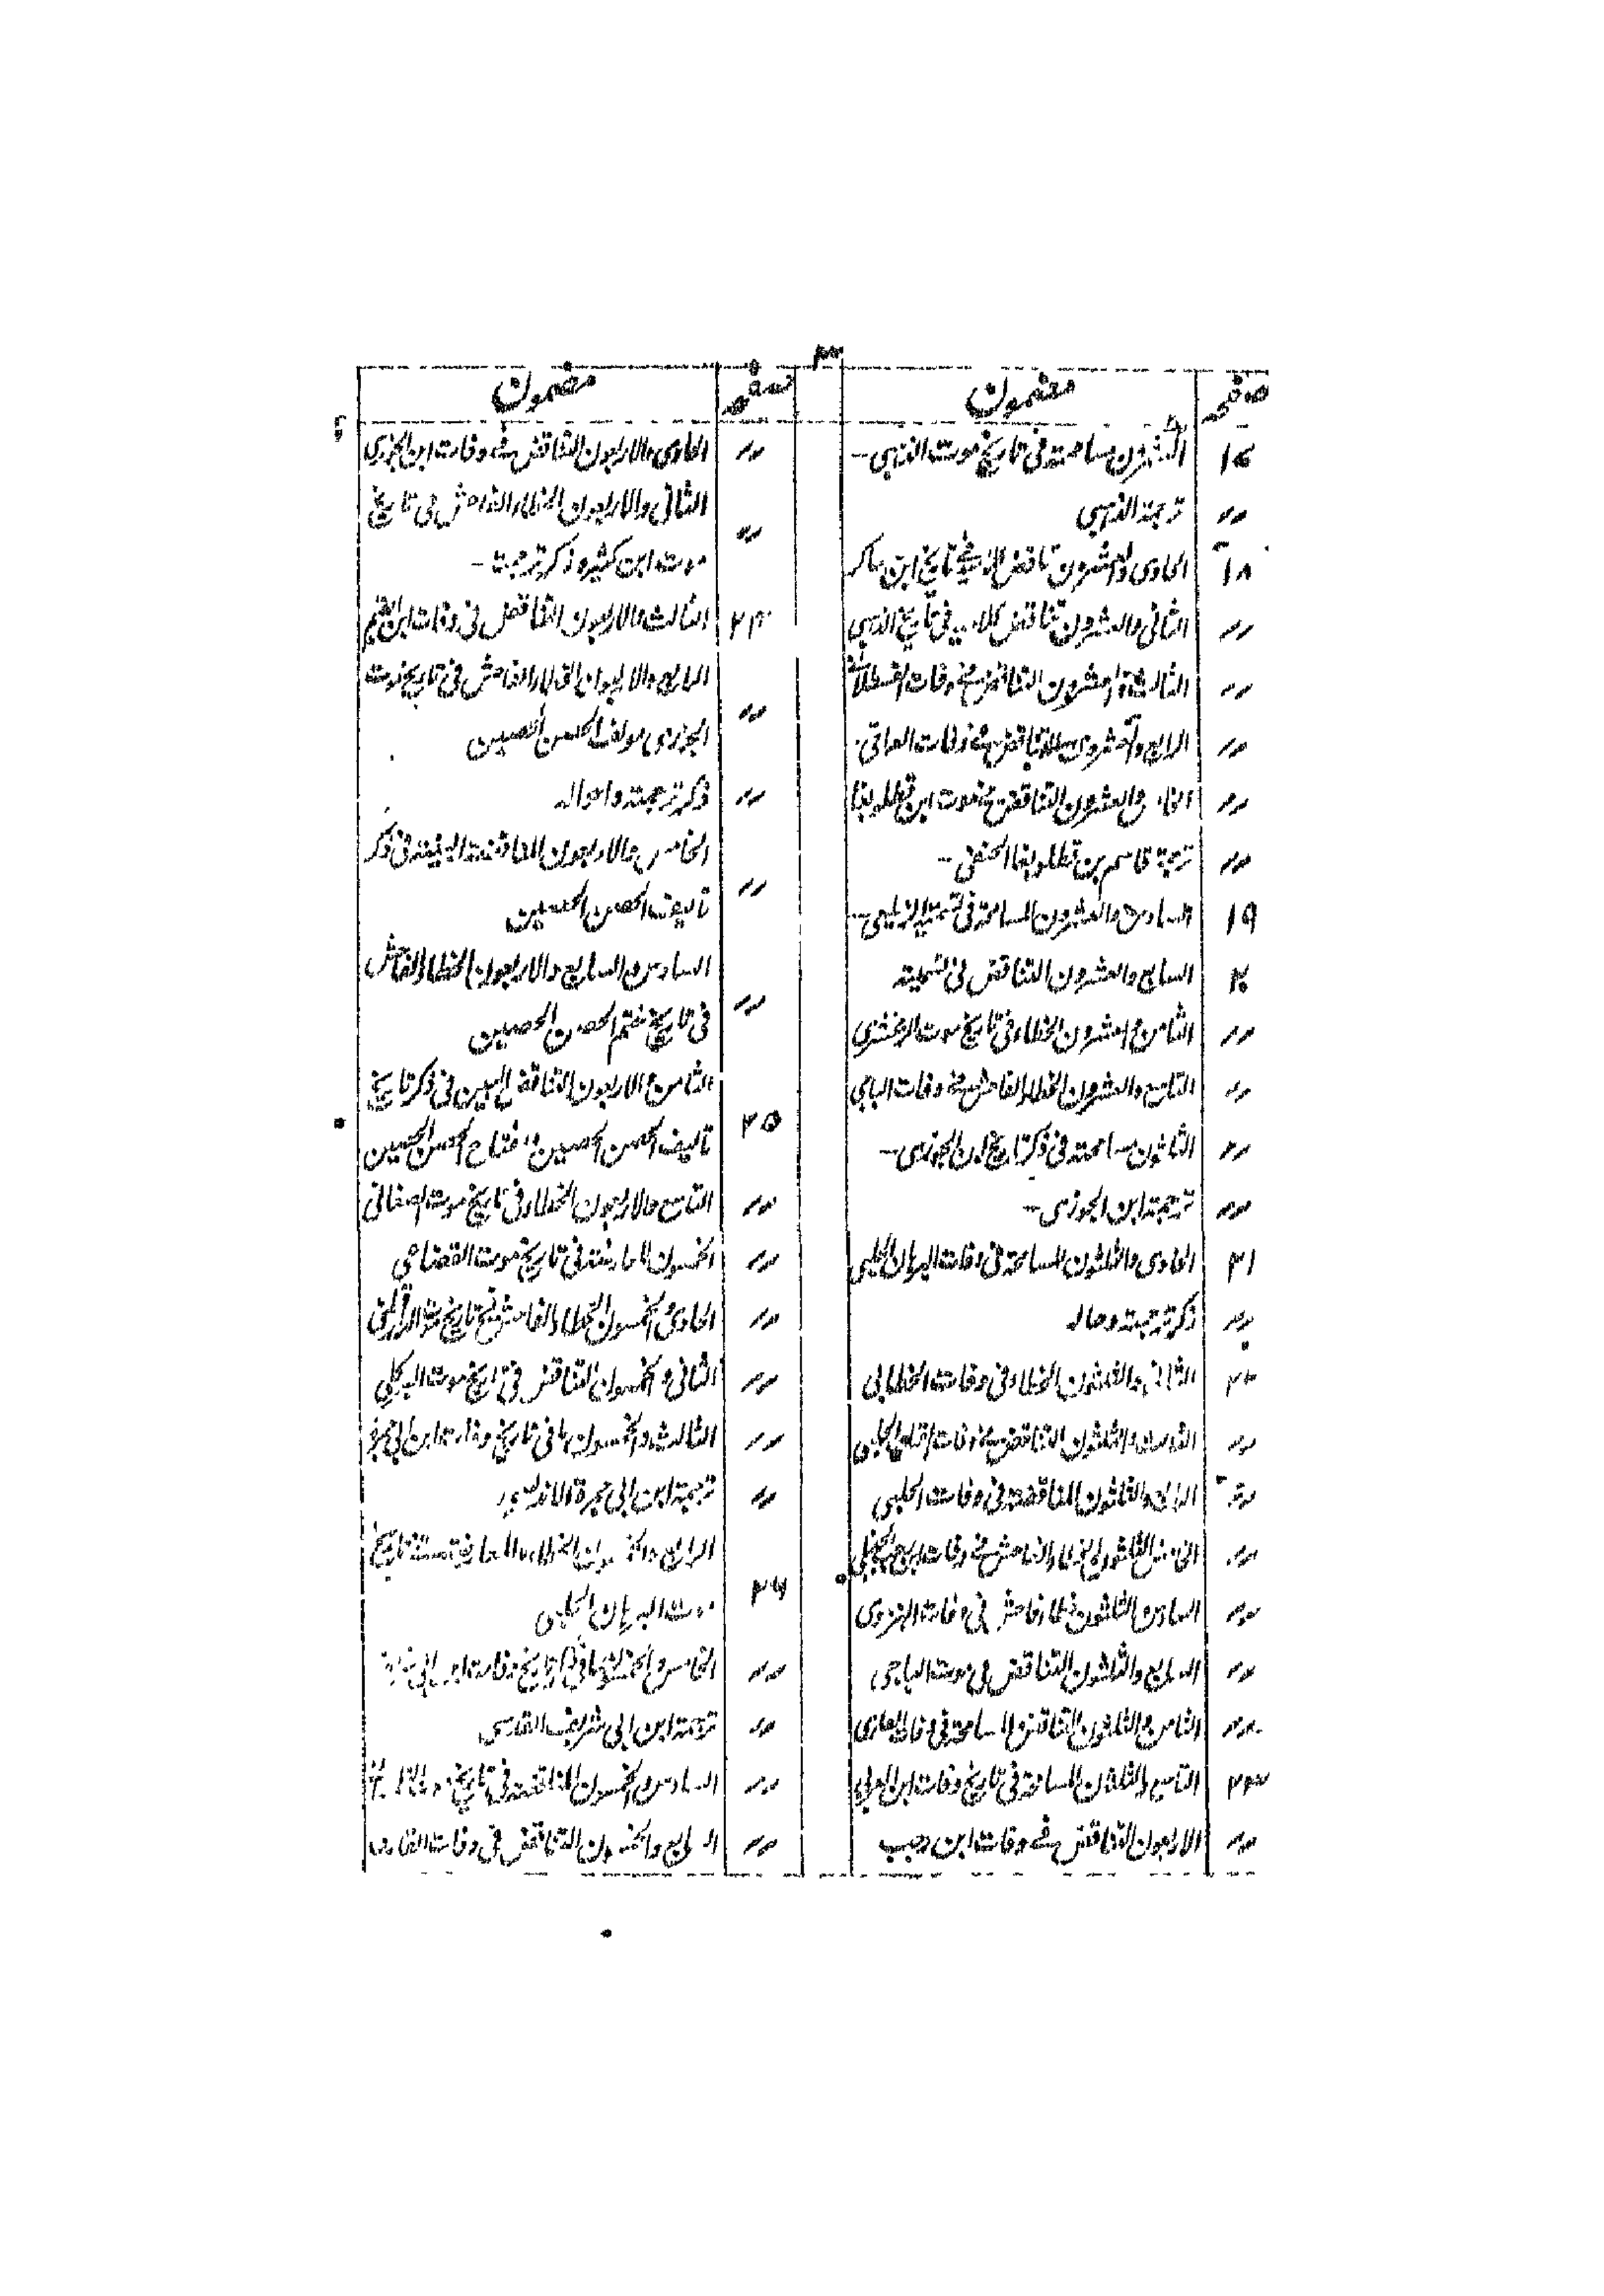 ٣
صفحہ مضمون
١٧ العشرون مسامحته فى تاريخ موت الذهبى-
〃 ترجمة الذهبى
١٨ الحادى والعشرون تناقض تاريخ ابن عساكر
〃 الثانى والعشرون تناقض كلاميه فى تاريخ الذهبى
〃 الثالث والعشرون التناقض فى وفات القسطلانى
〃 الرابع والعشرون التناقض فى وفات العراقى
〃 الخامس والعشرون التناقض فى موت ابن قطلوبغا
〃 ترجمة قاسم بن قطلوبغا الحنفى-
١٩ السادس والعشرون المسامحة فى تسمية الزيلعى-
٢٠ السابع والعشرون التناقض فى تسميته
〃 الثامن والعشرون الخطاء فى تاريخ موت الزمخشرى
〃 التاسع والعشرون الخطاء الفاحش فى وفات الباجى
〃 الثلثون مسامحته فى ذكر تاريخ ابن الجوزى-
〃 ترجمة ابن الجوزى-
٢١ الحادى والثلثون المسامحة فى وفات البرهان الحلبى
〃 ذكر ترجمته وحاله
٢٢ الثانى والثلثون الخطاء فى وفات الخطابى
〃 الثالث والثلثون التناقض فى وفات الحلبى
〃 الرابع والثلثون المناقضة فى وفات الحلبى
〃 الخامس والثلثون الخطاء الفاحش فى وفات ابن
〃 السادس والثلثون خطاء فاحش فى وفات البزدوى
〃 السابع والثلثون التناقض فى موت الباجى
〃 الثامن والثلثون التناقض والمسامحة فى وفات
٢٣ التاسع والثلثون المسامحة فى تاريخ وفات ابن العربى
〃 الاربعون التناقض فى وفات ابن رجب
صفحہ مضمون
〃 الحادى والاربعون التناقض فى وفات ابن الجزرى
الثانى والاربعون الخطاء الفاحش فى تاريخ
〃 موت ابن كثير وذكر ترجمته-
٢٤ الثالث والاربعون التناقض فى وفات ابن القيم
الرابع والاربعون الخطاء الفاحش فى تاريخ موت
〃 الجزرى مولف الحصن الحصين
〃 ذكر ترجمته واحواله
الخامس والاربعون المناقضة البينة فى ذكر
〃 تاليف الحصن الحصين
السادس والسابع والاربعون الخطاء الفاحش
〃 فى تاريخ ختم الحصن الحصين
الثامن والاربعون التناقض البين فى ذكر تاريخ
٢٥ تاليف الحصن الحصين ومفتاح الحصن الحصين
〃 التاسع والاربعون الخطاء فى تاريخ موت الصغانى
〃 الخمسون المعارضة فى تاريخ موت القضاعى
〃 الحادى والخمسون الخطاء الفاحش فى تاريخ موت الدارقطنى
〃 الثانى والخمسون التناقض فى تاريخ موت البركلى
〃 الثالث والخمسون ما فى تاريخ وفات ابن ابى جمرة
〃 ترجمة ابن ابى جمرة الاندلسى
الرابع والخمسون الخطاء والمعارضة فى تاريخ
٢٦ موت البرهان الحلبى
〃 الخامس والخمسون ما فى تاريخ وفات ابن ابى شريف
〃 ترجمة ابن ابى شريف القدسى
〃 السادس والخمسون المناقضة فى تاريخ
〃 السابع والخمسون التناقض فى وفات القارى